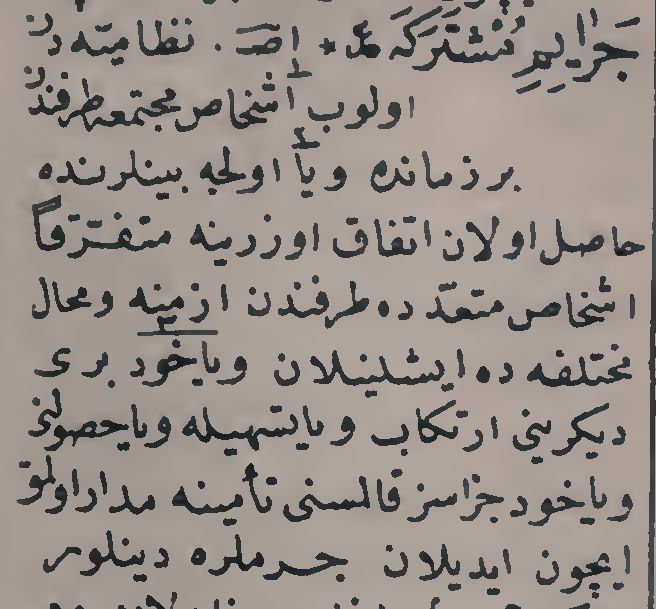 جَرَايِمِ مُشْتَرَكَه ع ٭ اصـ . نظاميه در
اولوب ١ اشخاص مجتمعه طرفندن
بر زمانده ويا ٢ اولجه بينلرنده
حاصل اولان اتفاق اوزرينه متفرّقاً
اشخاص متعدّده طرفندن ازمنه ومحال
مختلفه ده ايشلنيلان ٣ وياخود برى
ديكرينى ارتكاب ويا تسهيله ويا حصولنى
وياخود جزاسز قالمسنى تأمينه مدار اولمق
ايچون ايديلان جرملره دينلور